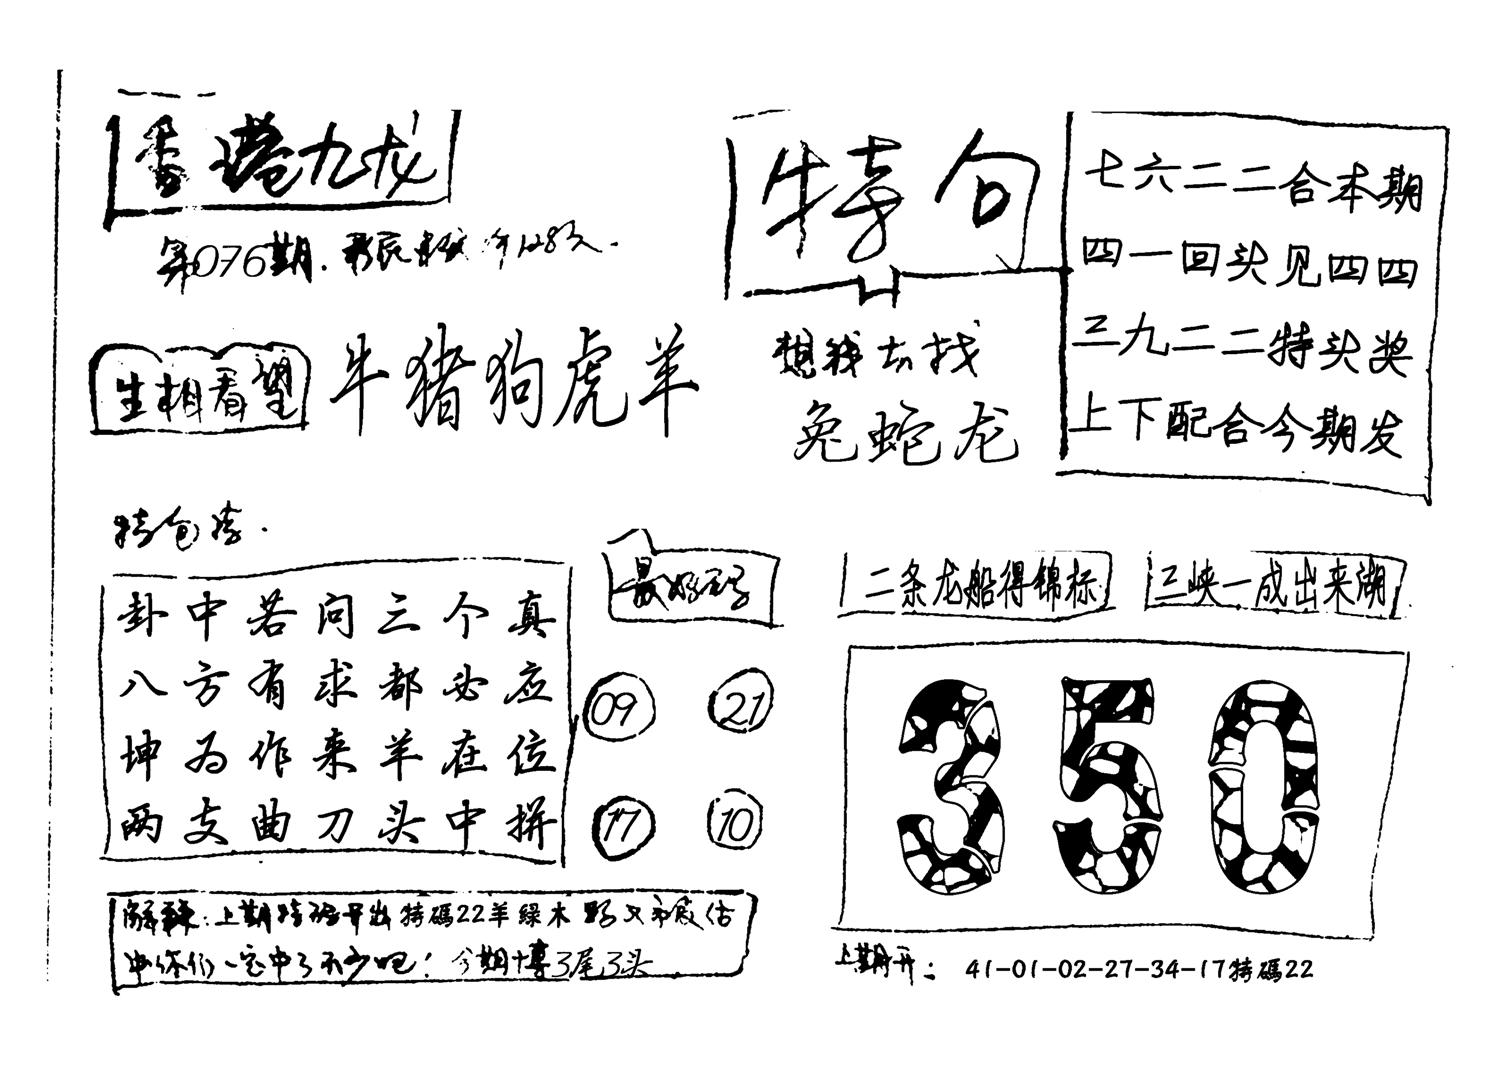 香港九龙
第076期.
生相看望
牛猪狗虎羊
特句
想钱去找
兔蛇龙
七六二二合本期
四一回头见四四
三九二二特头奖
上下配合今期发
特包诗.
卦中若问三个真
八方有求都必应
坤为作来羊在位
两支曲刀头中拼
最好码
09 21
17 10
二条龙船得锦标
三峡一成出来湖
350
解释:上期特码开出特碼22羊緑木
你们一定中了不少吧!今期十博3尾3头
上期开: 41-01-02-27-34-17特碼22